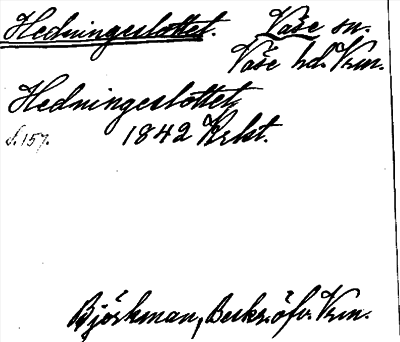 Hedningeslottet. Väse sn.
Väse hd. Vrm.
Hedningeslottet,
s. 157. 1842 Krkt.
Björkman, Beskr. öfv. Vrm.